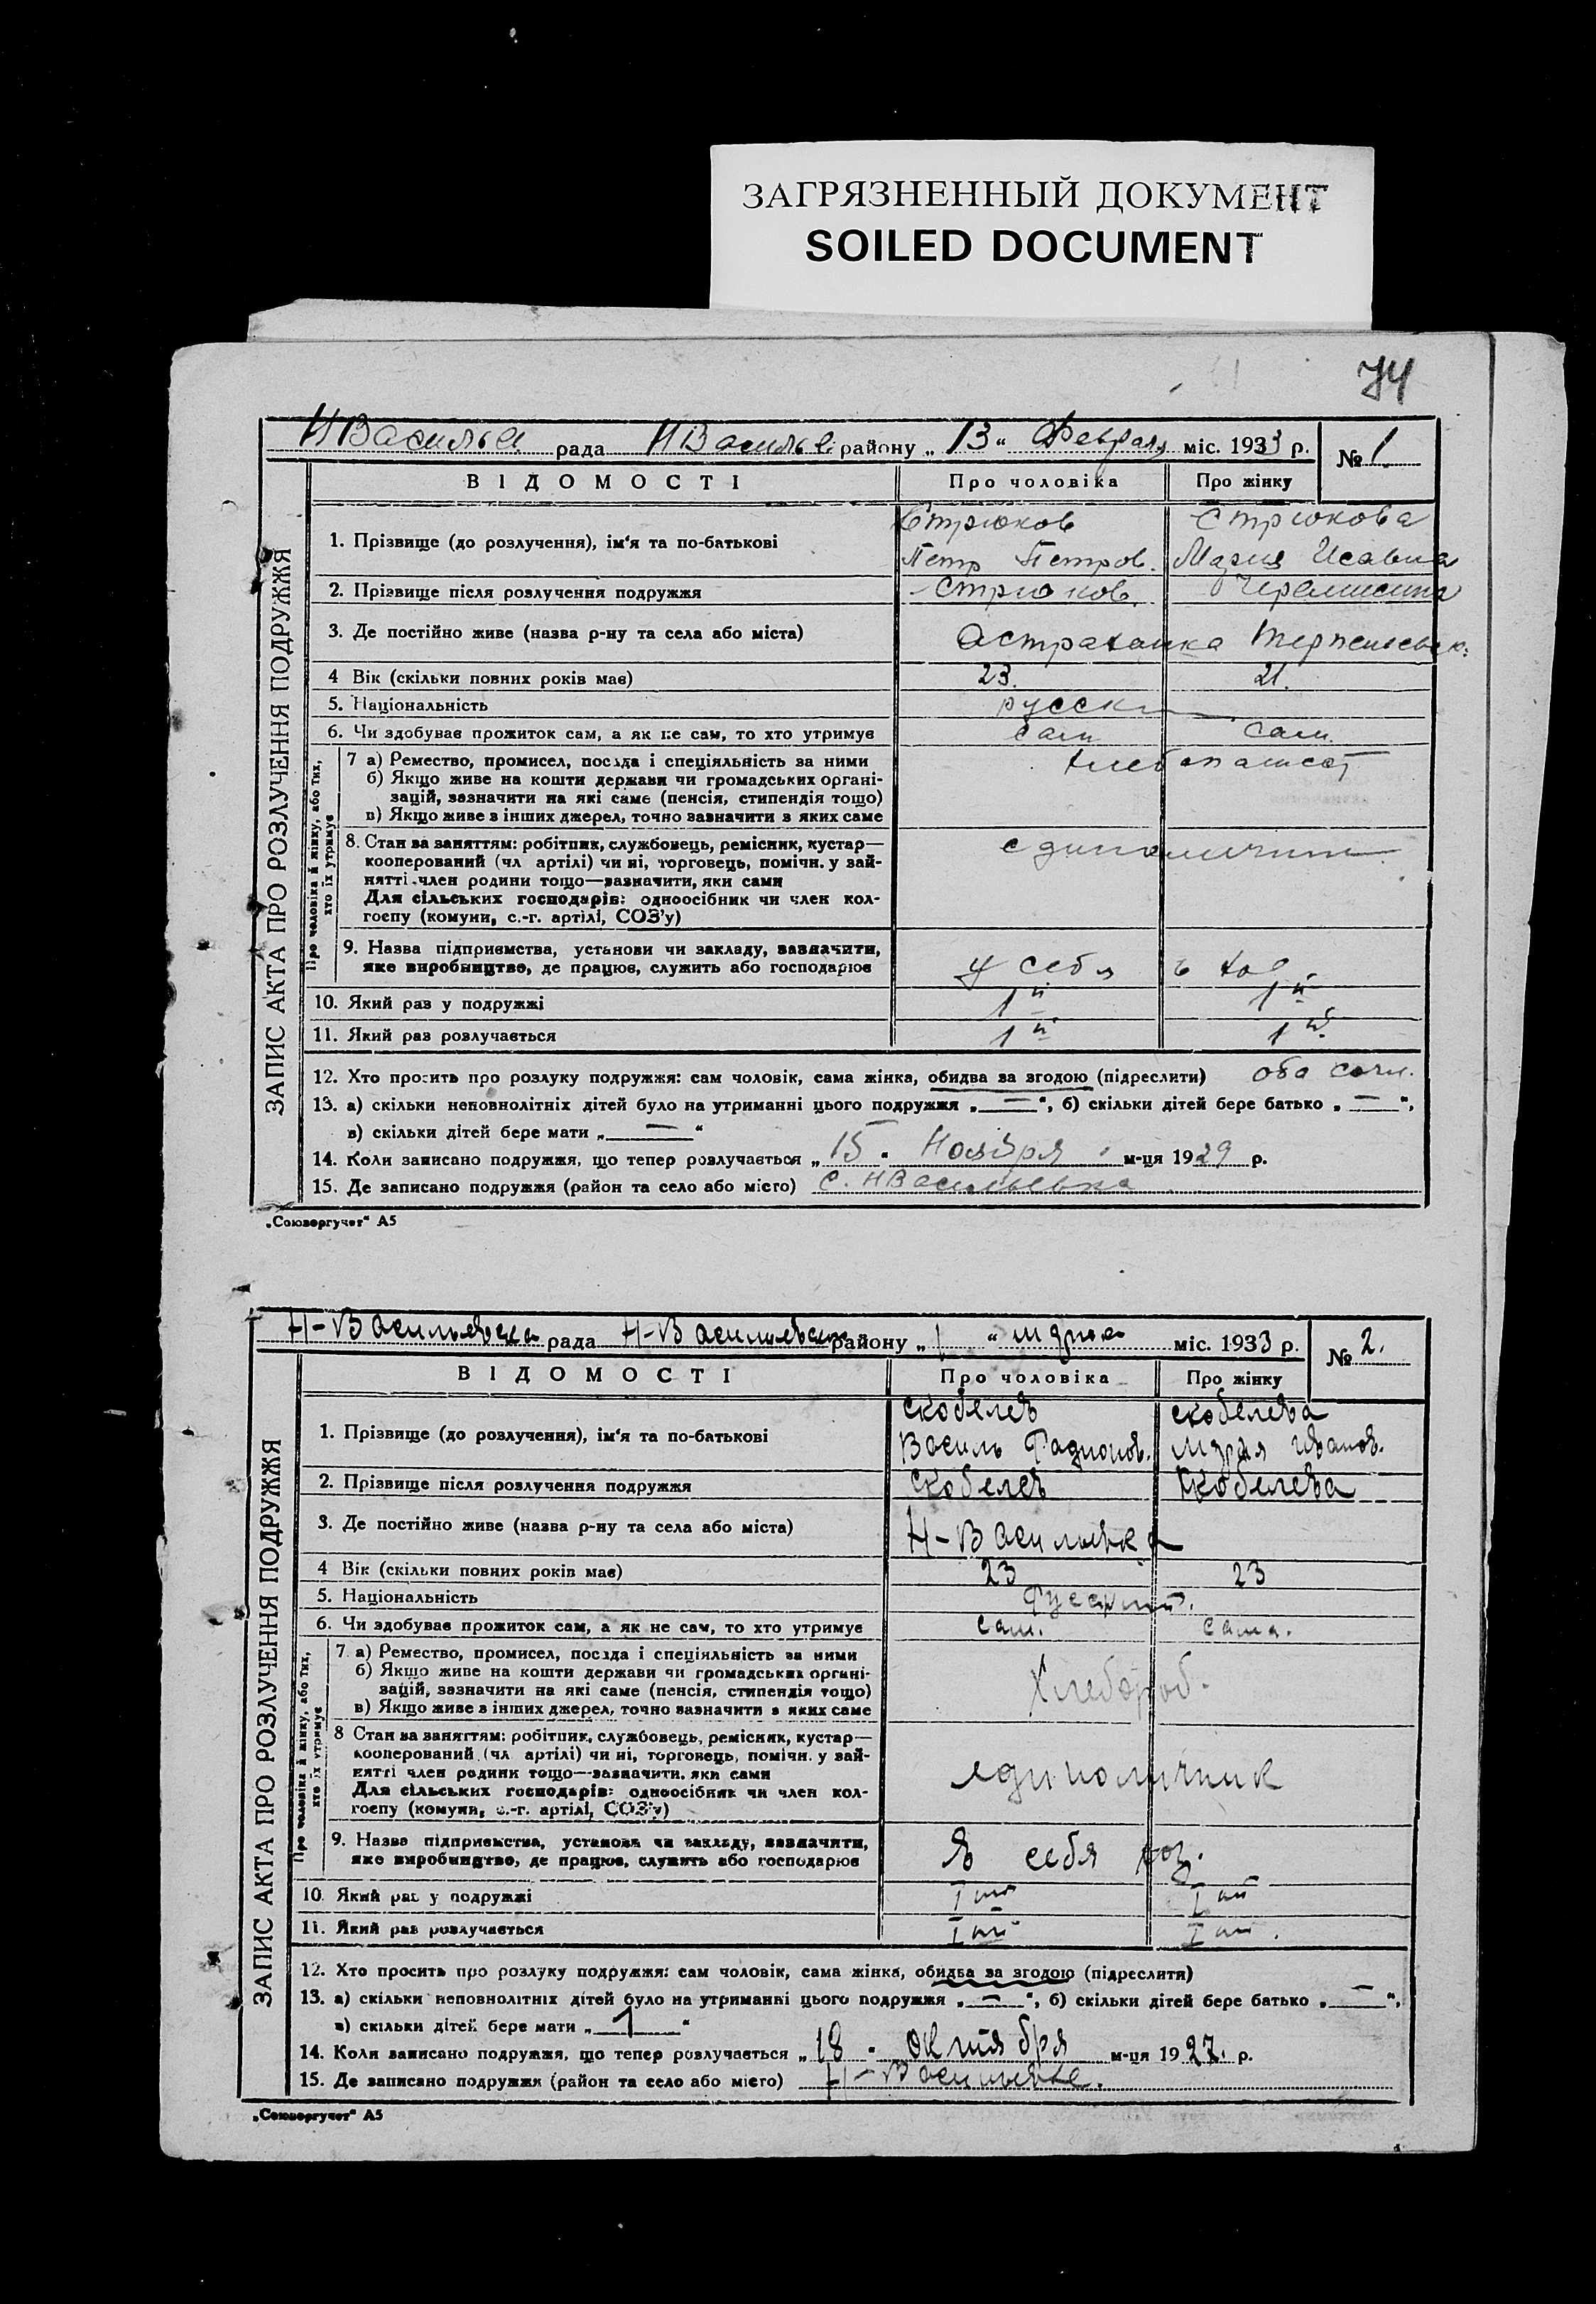 ЗАГРЯЗНЕННЫЙ ДОКУМЕНТ
SOILED DOCUMENT
74
НВасильев рада НВасилье району „13“ Февраля міс. 1933 р. № 1
ЗАПИС АКТА ПРО РОЗЛУЧЕННЯ ПОДРУЖЖЯ
ВІДОМОСТІ Про чоловіка Про жінку
1. Прізвище (до розлучення), ім'я та по-батькові
Стрюков Стрюкова
Петр Петров. Мария Исавна
2. Прізвище після розлучення подружжя Стрюков
3. Де постійно живе (назва р-ну та села або міста) Астраханка
4 Вік (скільки повних років має) 23. 21.
5. Національність русск
6. Чи здобуває прожиток сам, а як не сам, то хто утримує сам сам.
Про чоловіка й жінку, або тих, хто їх утримує
7 а) Ремество, промисел, посада і спеціяльність за ними
б) Якщо живе на кошти держави чи громадських органі-
зацій, зазначити на які саме (пенсія, стипендія тощо)
в) Якщо живе з інших джерел, точно зазначити з яких саме
8. Стан за заняттям: робітник, службовець, ремісник, кустар—
кооперований (чл артілі) чи ні, торговець, помічн. у зай-
нятті член родини тощо—зазначити, яки сами
Для сільських господарів: одноосібник чи член кол-
госпу (комуни, с.-г. артілі, СОЗ'у)
9. Назва підприємства, установи чи закладу, зазначити,
яке виробництво, де працює, служить або господарює у себя
10. Який раз у подружжі 1й 1й
11. Який раз розлучається 1й 1й
12. Хто просить про розлуку подружжя: сам чоловік, сама жінка, обидва за згодою (підреслити) оба
13. а) скільки неповнолітніх дітей було на утриманні цього подружжя „—“, б) скільки дітей бере батько „—“,
в) скільки дітей бере мати „—“
14. Коли записано подружжя, що тепер розлучається „15“ Ноября м-ця 1929 р.
15. Де записано подружжя (район та село або місто) с. НВасильевка
„Союзоргучет“ А5
Н-Васильевска рада Н-Васильевско району „1“ марта міс. 1933 р. № 2.
ЗАПИС АКТА ПРО РОЗЛУЧЕННЯ ПОДРУЖЖЯ
ВІДОМОСТІ Про чоловіка Про жінку
1. Прізвище (до розлучення), ім'я та по-батькові
Скобелев Скобелева
Василь Радионов. Мария Иванов.
2. Прізвище після розлучення подружжя Скобелев Скобелева
3. Де постійно живе (назва р-ну та села або міста) Н-Васильевка
4 Вік (скільки повних років має) 23 23
5. Національність Русский.
6. Чи здобуває прожиток сам, а як не сам, то хто утримує сам. сама.
Про чоловіка й жінку, або тих, хто їх утримує
7. а) Ремество, промисел, посада і спеціяльність за ними
б) Якщо живе на кошти держави чи громадських органі-
зацій, зазначити на які саме (пенсія, стипендія тощо)
в) Якщо живе з інших джерел, точно зазначити з яких саме
Хлебороб.
8 Стан за заняттям: робітник, службовець, ремісник, кустар—
кооперований (чл артілі) чи ні, торговець, помічн. у зай-
нятті член родини тощо—зазначити, яки сами
Для сільських господарів: одноосібник чи член кол-
госпу (комуни, с.-г. артілі, СОЗ'у)
единоличник
9. Назва підприємства, установи чи закладу, зазначити,
яке виробництво, де працює, служить або господарює
В себя хоз.
10. Який раз у подружжі I ий I ий
11. Який раз розлучається I ий I ий.
12. Хто просить про розлуку подружжя: сам чоловік, сама жінка, обидва за згодою (підреслити)
13. а) скільки неповнолітніх дітей було на утриманні цього подружжя „—“, б) скільки дітей бере батько „—“,
в) скільки дітей бере мати „1“
14. Коли записано подружжя, що тепер розлучається „18“ октября м-ця 1927. р.
15. Де записано подружжя (район та село або місто) Н-Васильевке.
„Союзоргучет“ А5